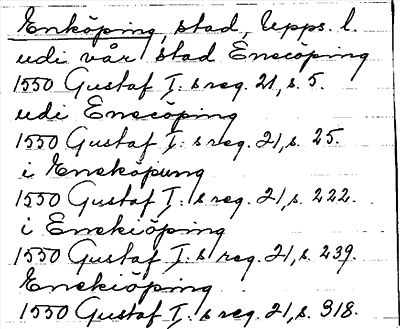 Enköping, stad, Upps. l.
udi vår stad Enecöping
1550 Gustaf I: s reg. 21, s. 5.
udi Enecöping
1550 Gustaf I: s reg. 21, s. 25.
i Eneköpung
1550 Gustaf I: s reg. 21, s. 222.
i Enekiöping
1550 Gustaf I: s reg. 21, s. 239.
Enekiöping
1550 Gustaf I: s reg. 21, s. 318.